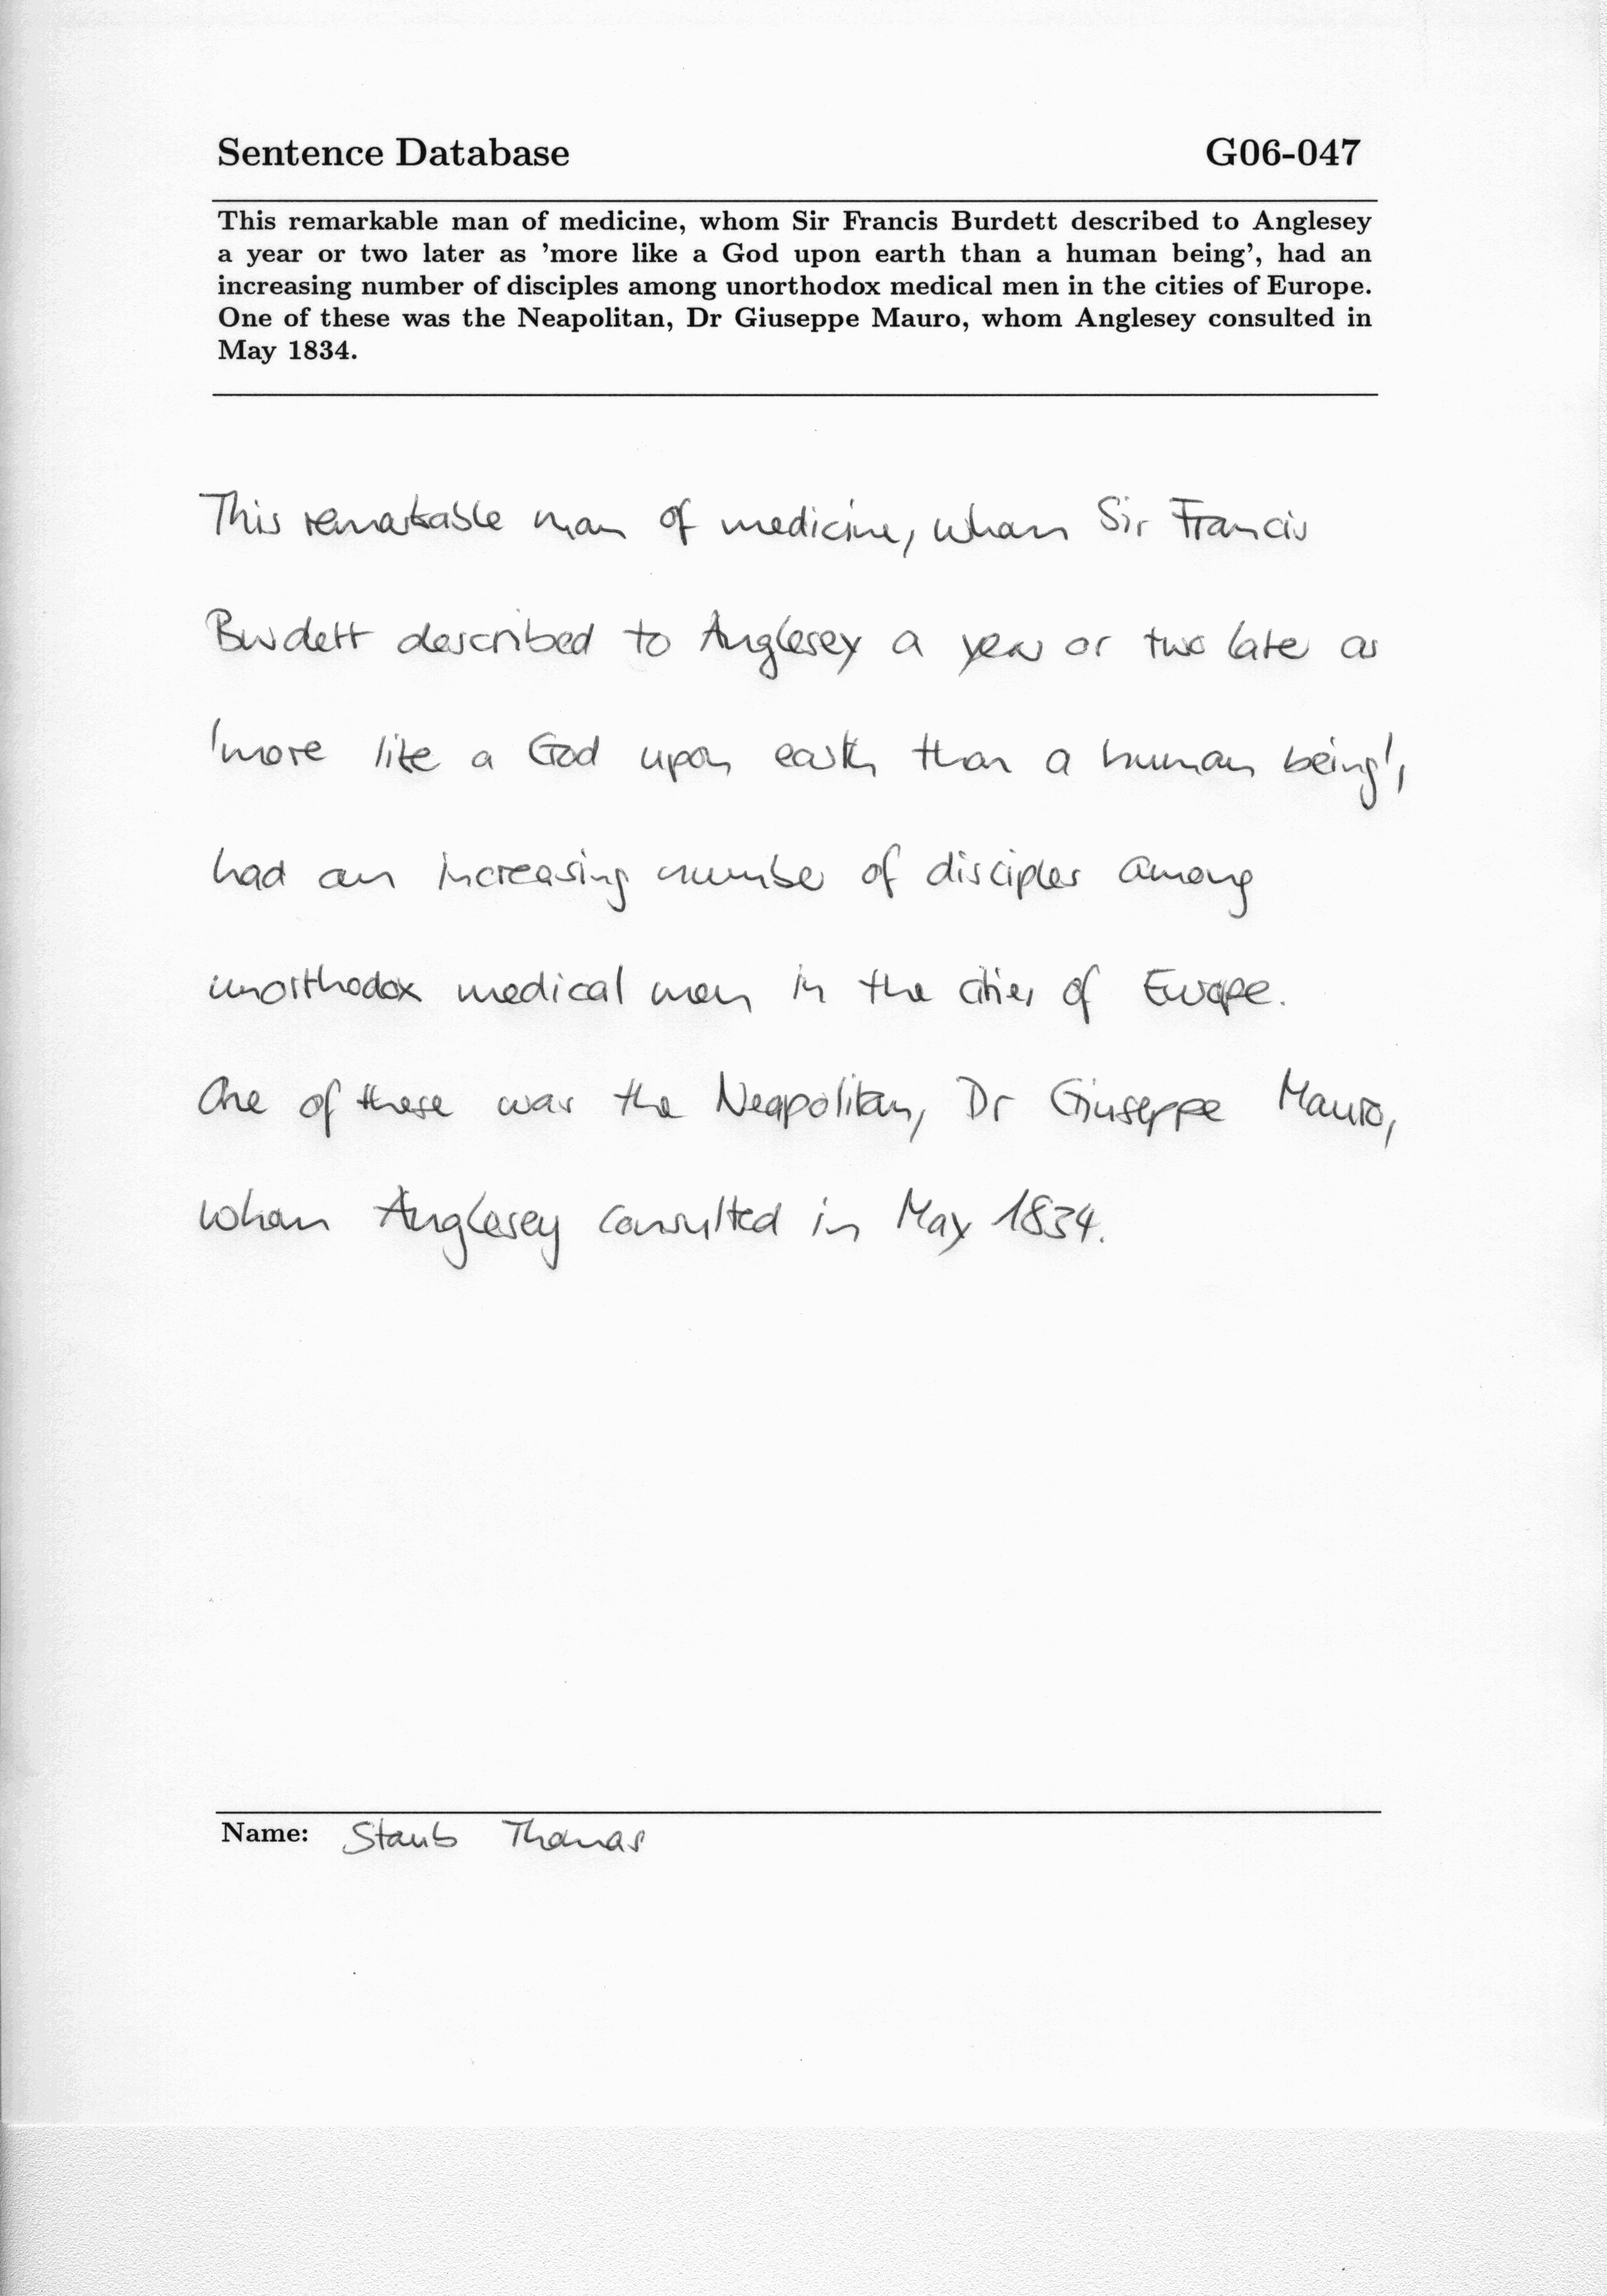 Sentence Database G06-047
This remarkable man of medicine, whom Sir Francis Burdett described to Anglesey
a year or two later as 'more like a God upon earth than a human being', had an
increasing number of disciples among unorthodox medical men in the cities of Europe.
One of these was the Neapolitan, Dr Giuseppe Mauro, whom Anglesey consulted in
May 1834.
This remarkable man of medicine, whom Sir Francis
Burdett described to Anglesey a year or two later as
'more like a God upon earth than a human being',
had an increasing number of disciples among
unorthodox medical men in the cities of Europe.
One of these was the Neapolitan, Dr Giuseppe Mauro,
whom Anglesey consulted in May 1834.
Name: Staub Thomas